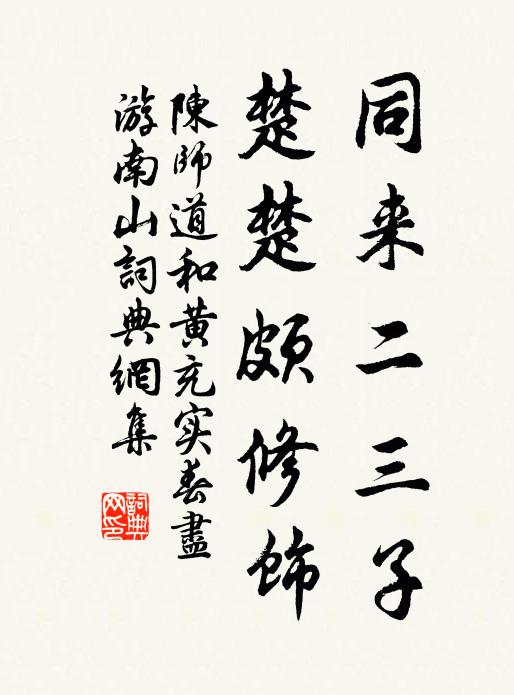 同来二三子
楚楚頗修飾
陳師道和黄充实春盡
游南山詞典網集
詞典网印